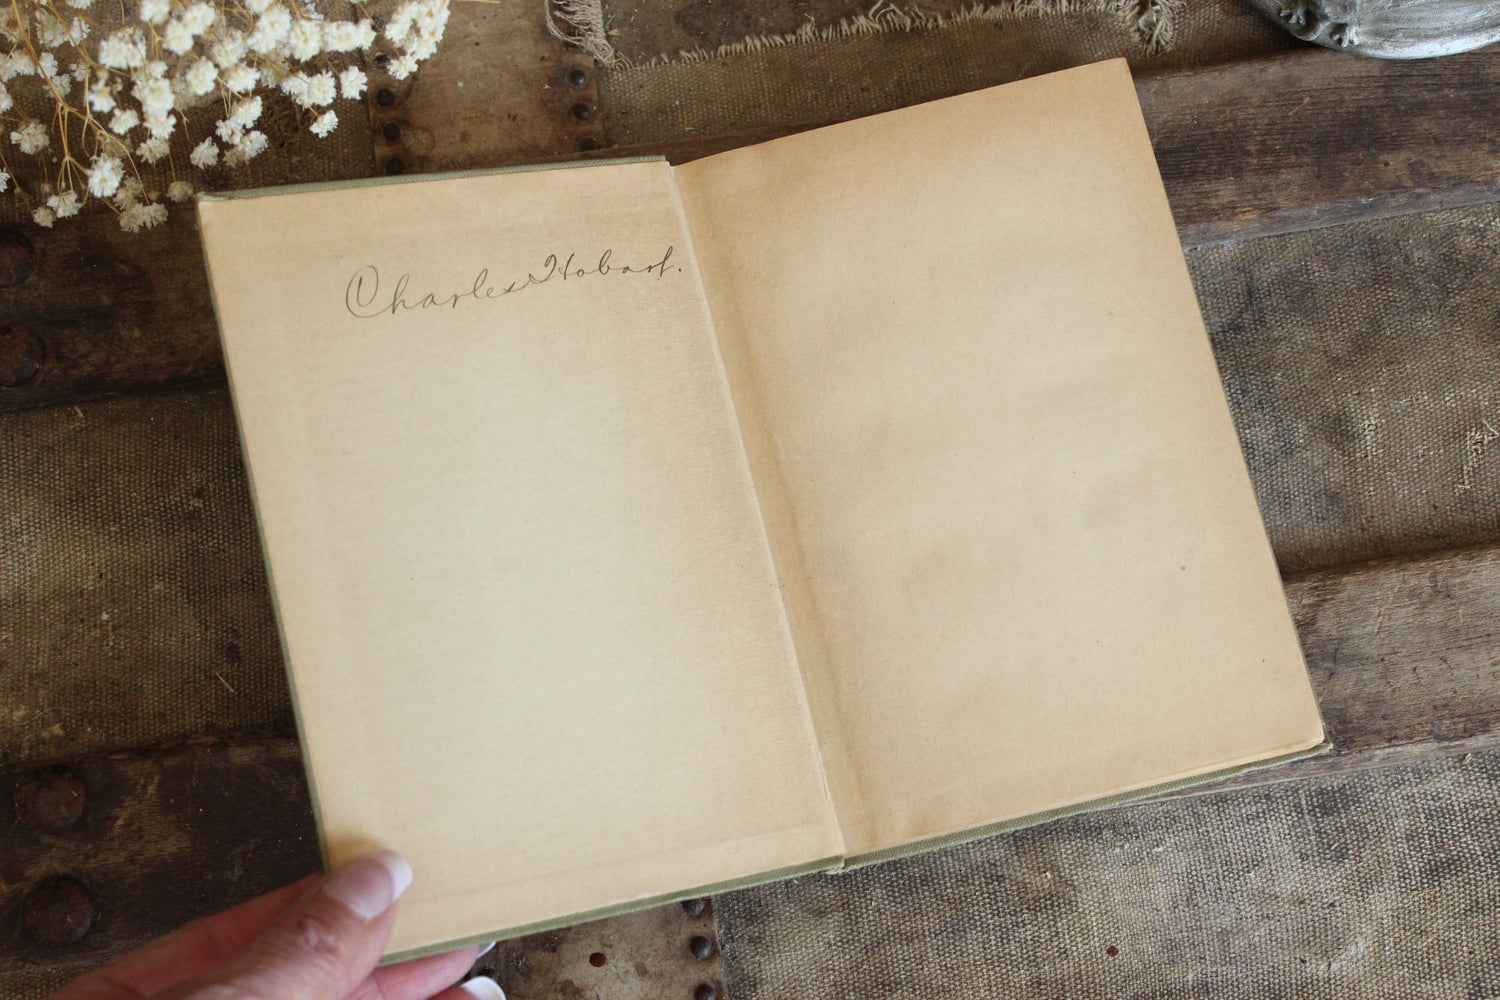 Charles Hobart.